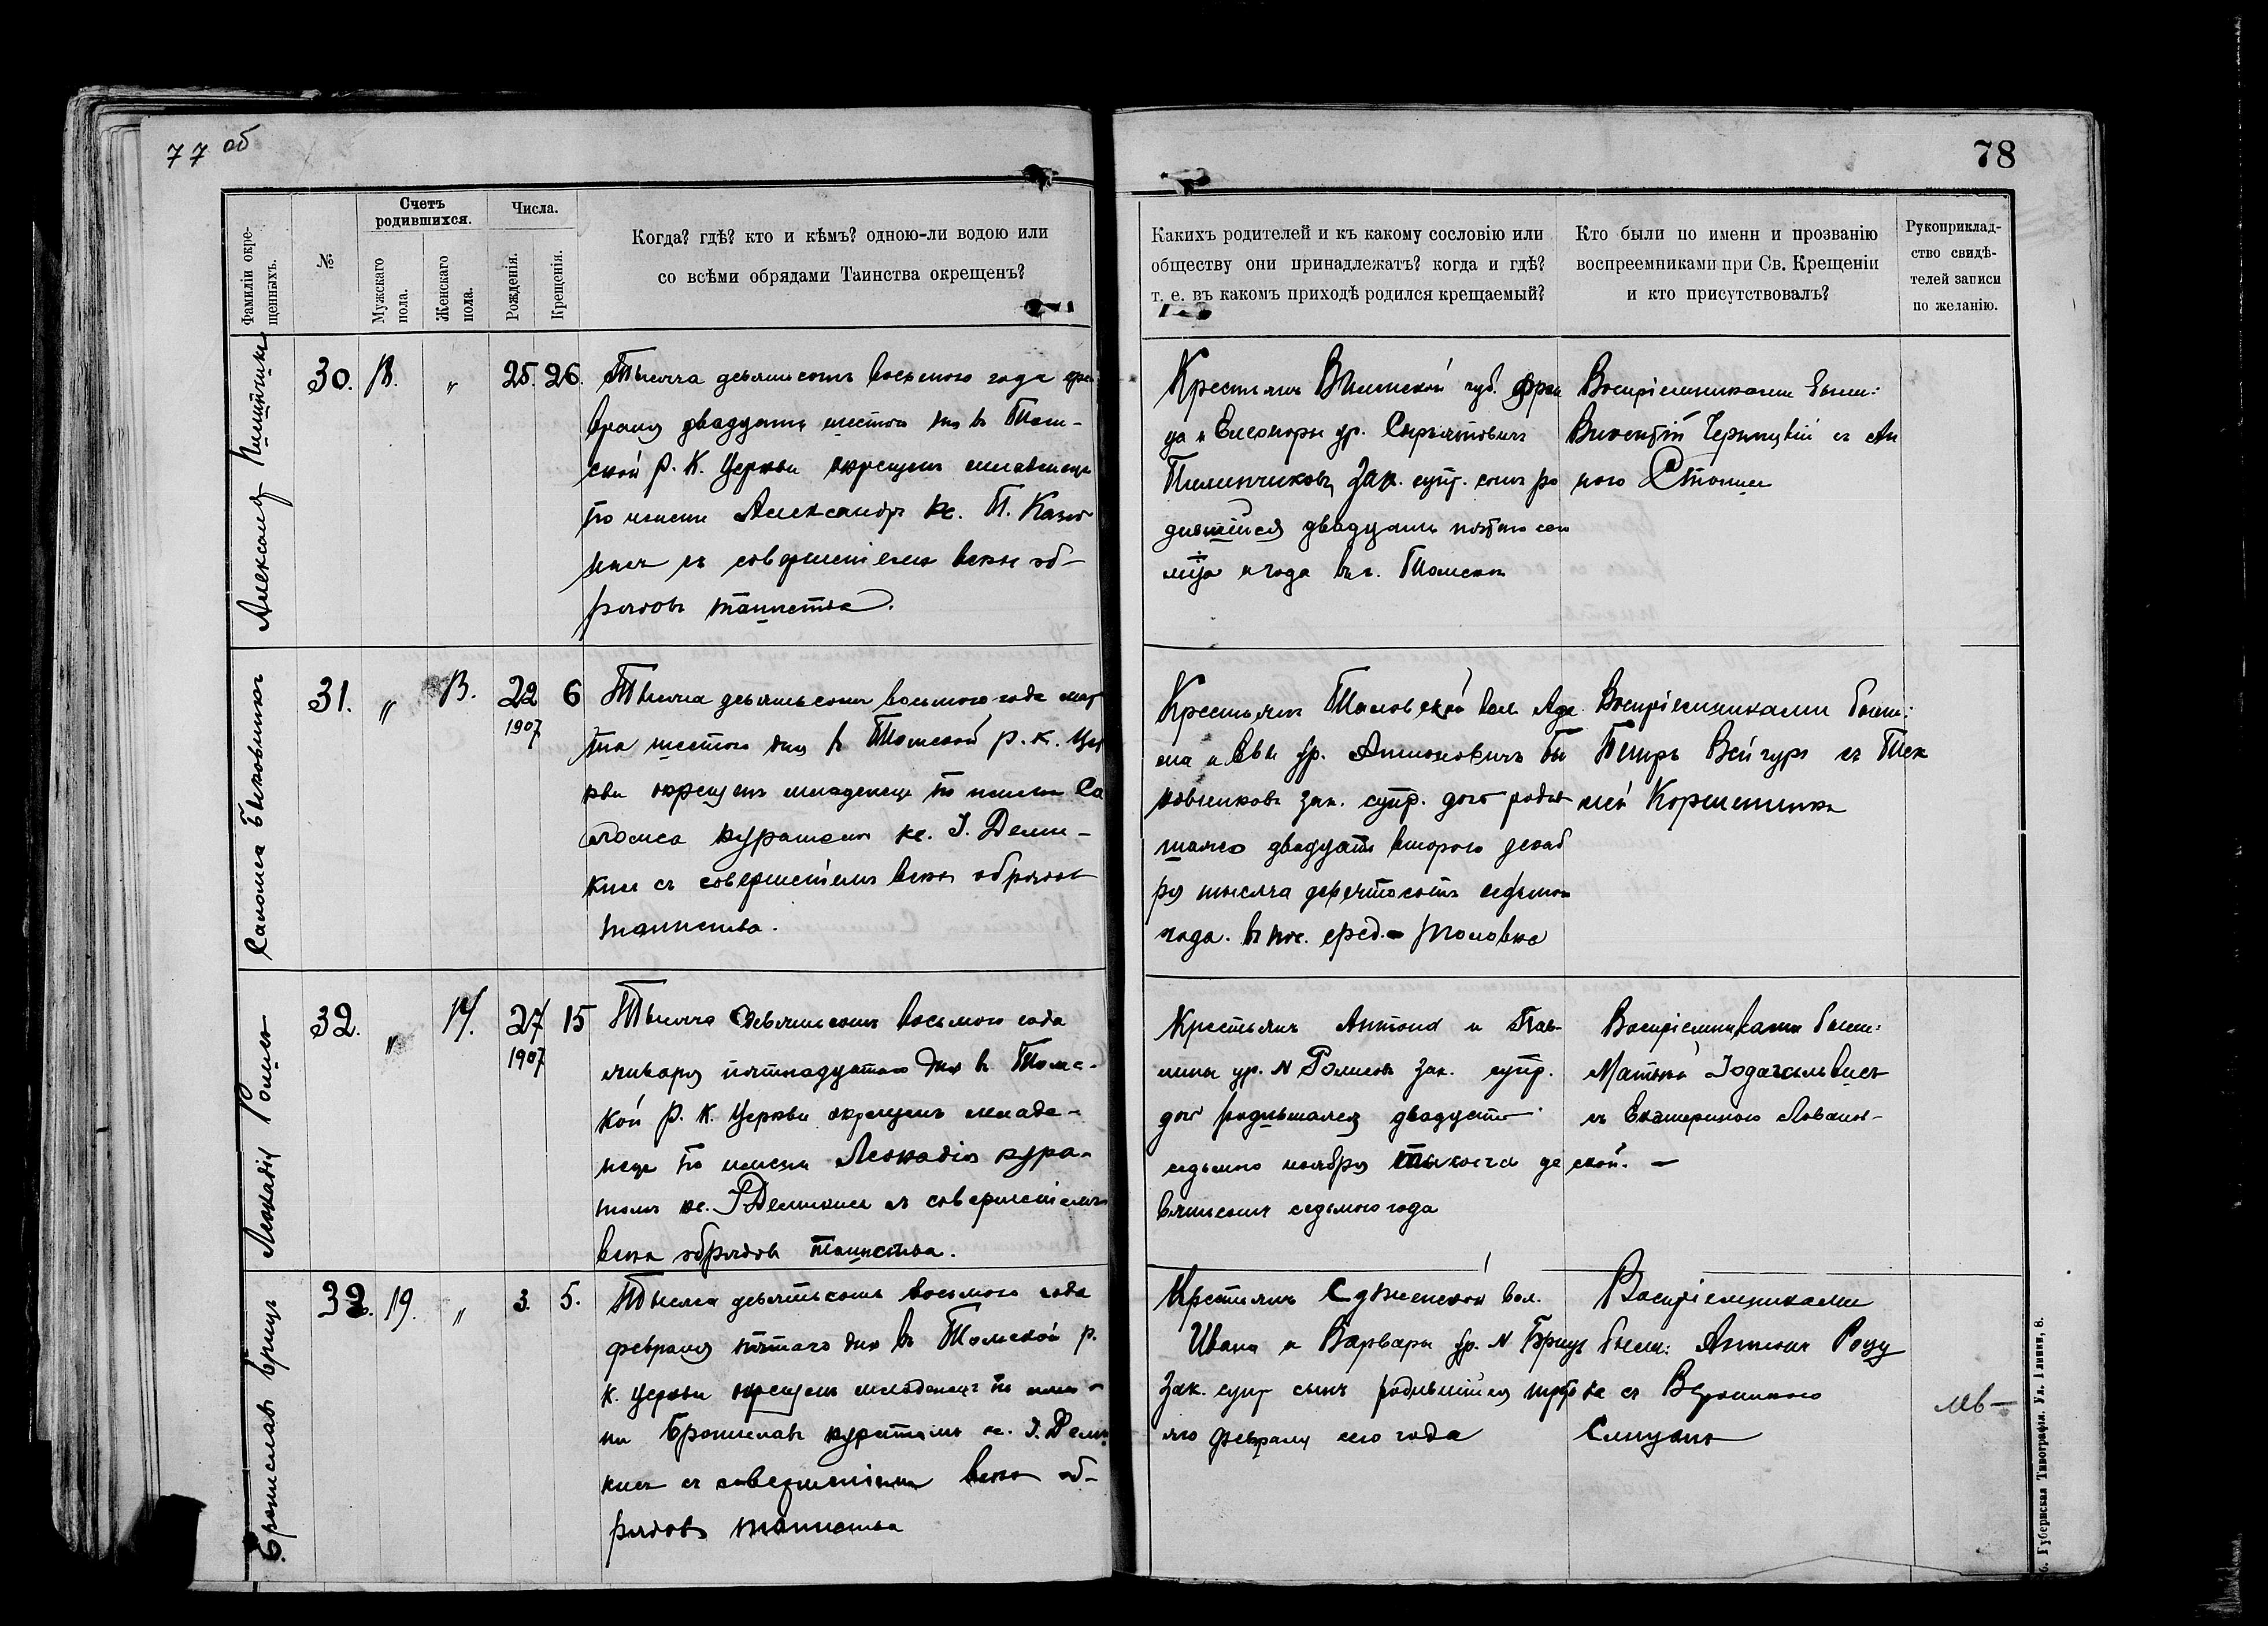 77 об
78
Фамиліи окре-
щенныхъ.
№
Счетъ
родившихся.
Мужскаго
пола.
Женскаго
пола.
Числа.
Рожденія.
Крещенія.
Когда? гдѣ? кто и кѣмъ? одною-ли водою или
со всѣми обрядами Таинства окрещенъ?
Какихъ родителей и къ какому сословію или
обществу они принадлежатъ? когда и гдѣ?
т. е. въ какомъ приходѣ родился крещаемый?
Кто были по имени и прозванію
воспреемниками при Св. Крещеніи
и кто присутствовалъ?
Рукоприклад-
ство свидѣ-
телей записи
по желанію.
Александръ
30. 18. „ 25. 26.
Тысяча девятьсотъ восьмого года фев
враля двадцать шестого дня въ Том-
ской Р. К. Церкви окрещенъ младенецъ
по имени Александръ кс.
съ совершеніемъ всѣхъ об-
рядовъ таинства.
Крестьянъ Виленской губ. Фран
ца и Елеоноры ур.
зак. супр. сынъ ро
дившійся двадцать пятаго сего
мѣсяца и года въ г. Томскѣ
Воспріемниками были:
Викентій съ Ан
ною
Саломея
31. „ 13. 22 6
1907
Тысяча девятьсотъ восьмого года мар
та шестого дня въ Томской Р. К. Цер
кви окрещенъ младенецъ по имени Са
ломея куратомъ кс. І. Деми-
кисъ съ совершеніемъ всѣхъ обрядовъ
таинства.
Крестьянъ Таловской вол. Ада
ма и Евы ур. Антоновичъ Бы
ковниковъ зак. супр. дочь родив
шаяся двадцать второго декаб
ря тысяча девятьсотъ седьмого
года. въ пос. сред. Таловка
Воспріемниками были:
Петръ Вейгуръ съ Тек
лей
Леокадія
32. „ 14. 27 15
1907
Тысяча девятьсотъ восьмого года
января пятнадцатаго дня въ Томс-
кой Р. К. Церкви окрещенъ младе-
нецъ по имени Леокадія кура-
томъ кс. І. Демикисъ съ совершеніемъ
всѣхъ обрядовъ таинства.
Крестьянъ Антона и Пав-
лины ур. N зак. супр.
дочь родившаяся двадцать
седьмого ноября тысяча де
вятьсотъ седьмого года
Воспріемниками были:
съ Екатериною Лованов-
ской. —
Брониславъ Брицъ
33. 19. „ 3. 5.
Тысяча девятьсотъ восьмого года
февраля пятаго дня въ Томской Р.
К. Церкви окрещенъ младенецъ по име-
ни Брониславъ куратомъ кс. І. Деми
кисъ съ совершеніемъ всѣхъ об-
рядовъ таинства
Крестьянъ Судженской вол.
Ивана и Варвары ур. N Брицъ
зак. супр сынъ родившійся треть
яго февраля сего года
Воспріемниками
были: Антонъ
съ Вероникою
б. Губернская Типографія. Уд. Линии, 8.